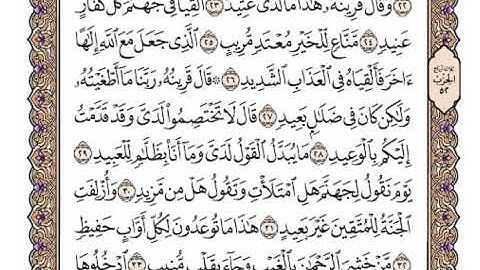 ٢٢ وَقَالَ قَرِينُهُۥ هَٰذَا مَا لَدَىَّ عَتِيدٌ ٢٣ أَلْقِيَا فِى جَهَنَّمَ كُلَّ كَفَّارٍ
عَنِيدٍ ٢٤ مَّنَّاعٍ لِّلْخَيْرِ مُعْتَدٍ مُّرِيبٍ ٢٥ ٱلَّذِى جَعَلَ مَعَ ٱللَّهِ إِلَٰهًا
ءَاخَرَ فَأَلْقِيَاهُ فِى ٱلْعَذَابِ ٱلشَّدِيدِ ٢٦ ۞ قَالَ قَرِينُهُۥ رَبَّنَا مَآ أَطْغَيْتُهُۥ
وَلَٰكِن كَانَ فِى ضَلَٰلٍۭ بَعِيدٍ ٢٧ قَالَ لَا تَخْتَصِمُوا۟ لَدَىَّ وَقَدْ قَدَّمْتُ
إِلَيْكُم بِٱلْوَعِيدِ ٢٨ مَا يُبَدَّلُ ٱلْقَوْلُ لَدَىَّ وَمَآ أَنَا۠ بِظَلَّٰمٍ لِّلْعَبِيدِ ٢٩
يَوْمَ نَقُولُ لِجَهَنَّمَ هَلِ ٱمْتَلَأْتِ وَتَقُولُ هَلْ مِن مَّزِيدٍ ٣٠ وَأُزْلِفَتِ
ٱلْجَنَّةُ لِلْمُتَّقِينَ غَيْرَ بَعِيدٍ ٣١ هَٰذَا مَا تُوعَدُونَ لِكُلِّ أَوَّابٍ حَفِيظٍ
٣٢ مَّنْ خَشِىَ ٱلرَّحْمَٰنَ بِٱلْغَيْبِ وَجَآءَ بِقَلْبٍ مُّنِيبٍ ٣٣ ٱدْخُلُوهَا
الحزب
٥٢